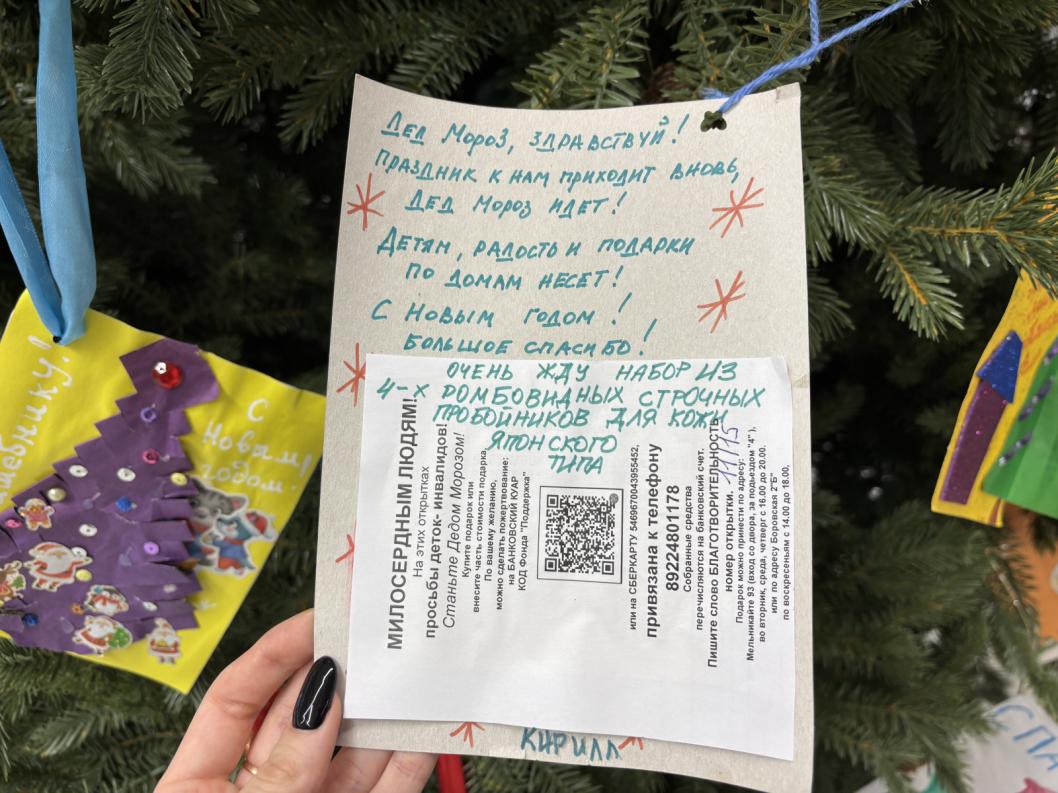 Дед Мороз, здравствуй!
Праздник к нам приходит вновь,
Дед Мороз идет!
Детям, радость и подарки
по домам несет!
С Новым годом!
Большое спасибо!
Очень жду набор из
4-х ромбовидных строчных
пробойников для кожи
японского
типа
МИЛОСЕРДНЫМ ЛЮДЯМ!
На этих открытках
просьбы деток- инвалидов!
Станьте Дедом Морозом!
Купите подарок или
внесите часть стоимости подарка.
По вашему желанию,
можно сделать пожертвование:
на БАНКОВСКИЙ КУАР
КОД Фонда "Поддержка"
или на СБЕРКАРТУ 5469670043955452,
привязана к телефону
89224801178
Собранные средства
перечисляются на банковский счет.
Пишите слово БЛАГОТВОРИТЕЛЬНОСТЬ
номер открытки. 11/15
Подарок можно принести по адресу:
Мельникайте 93 (вход со двора, за подъездом "4"),
во вторник, среда, четверг с 16.00 до 20.00.
или по адресу Боровская 2"Б"
по воскресеньям с 14.00 до 18.00,
Кирилл
С
Новым
годом!
СПА